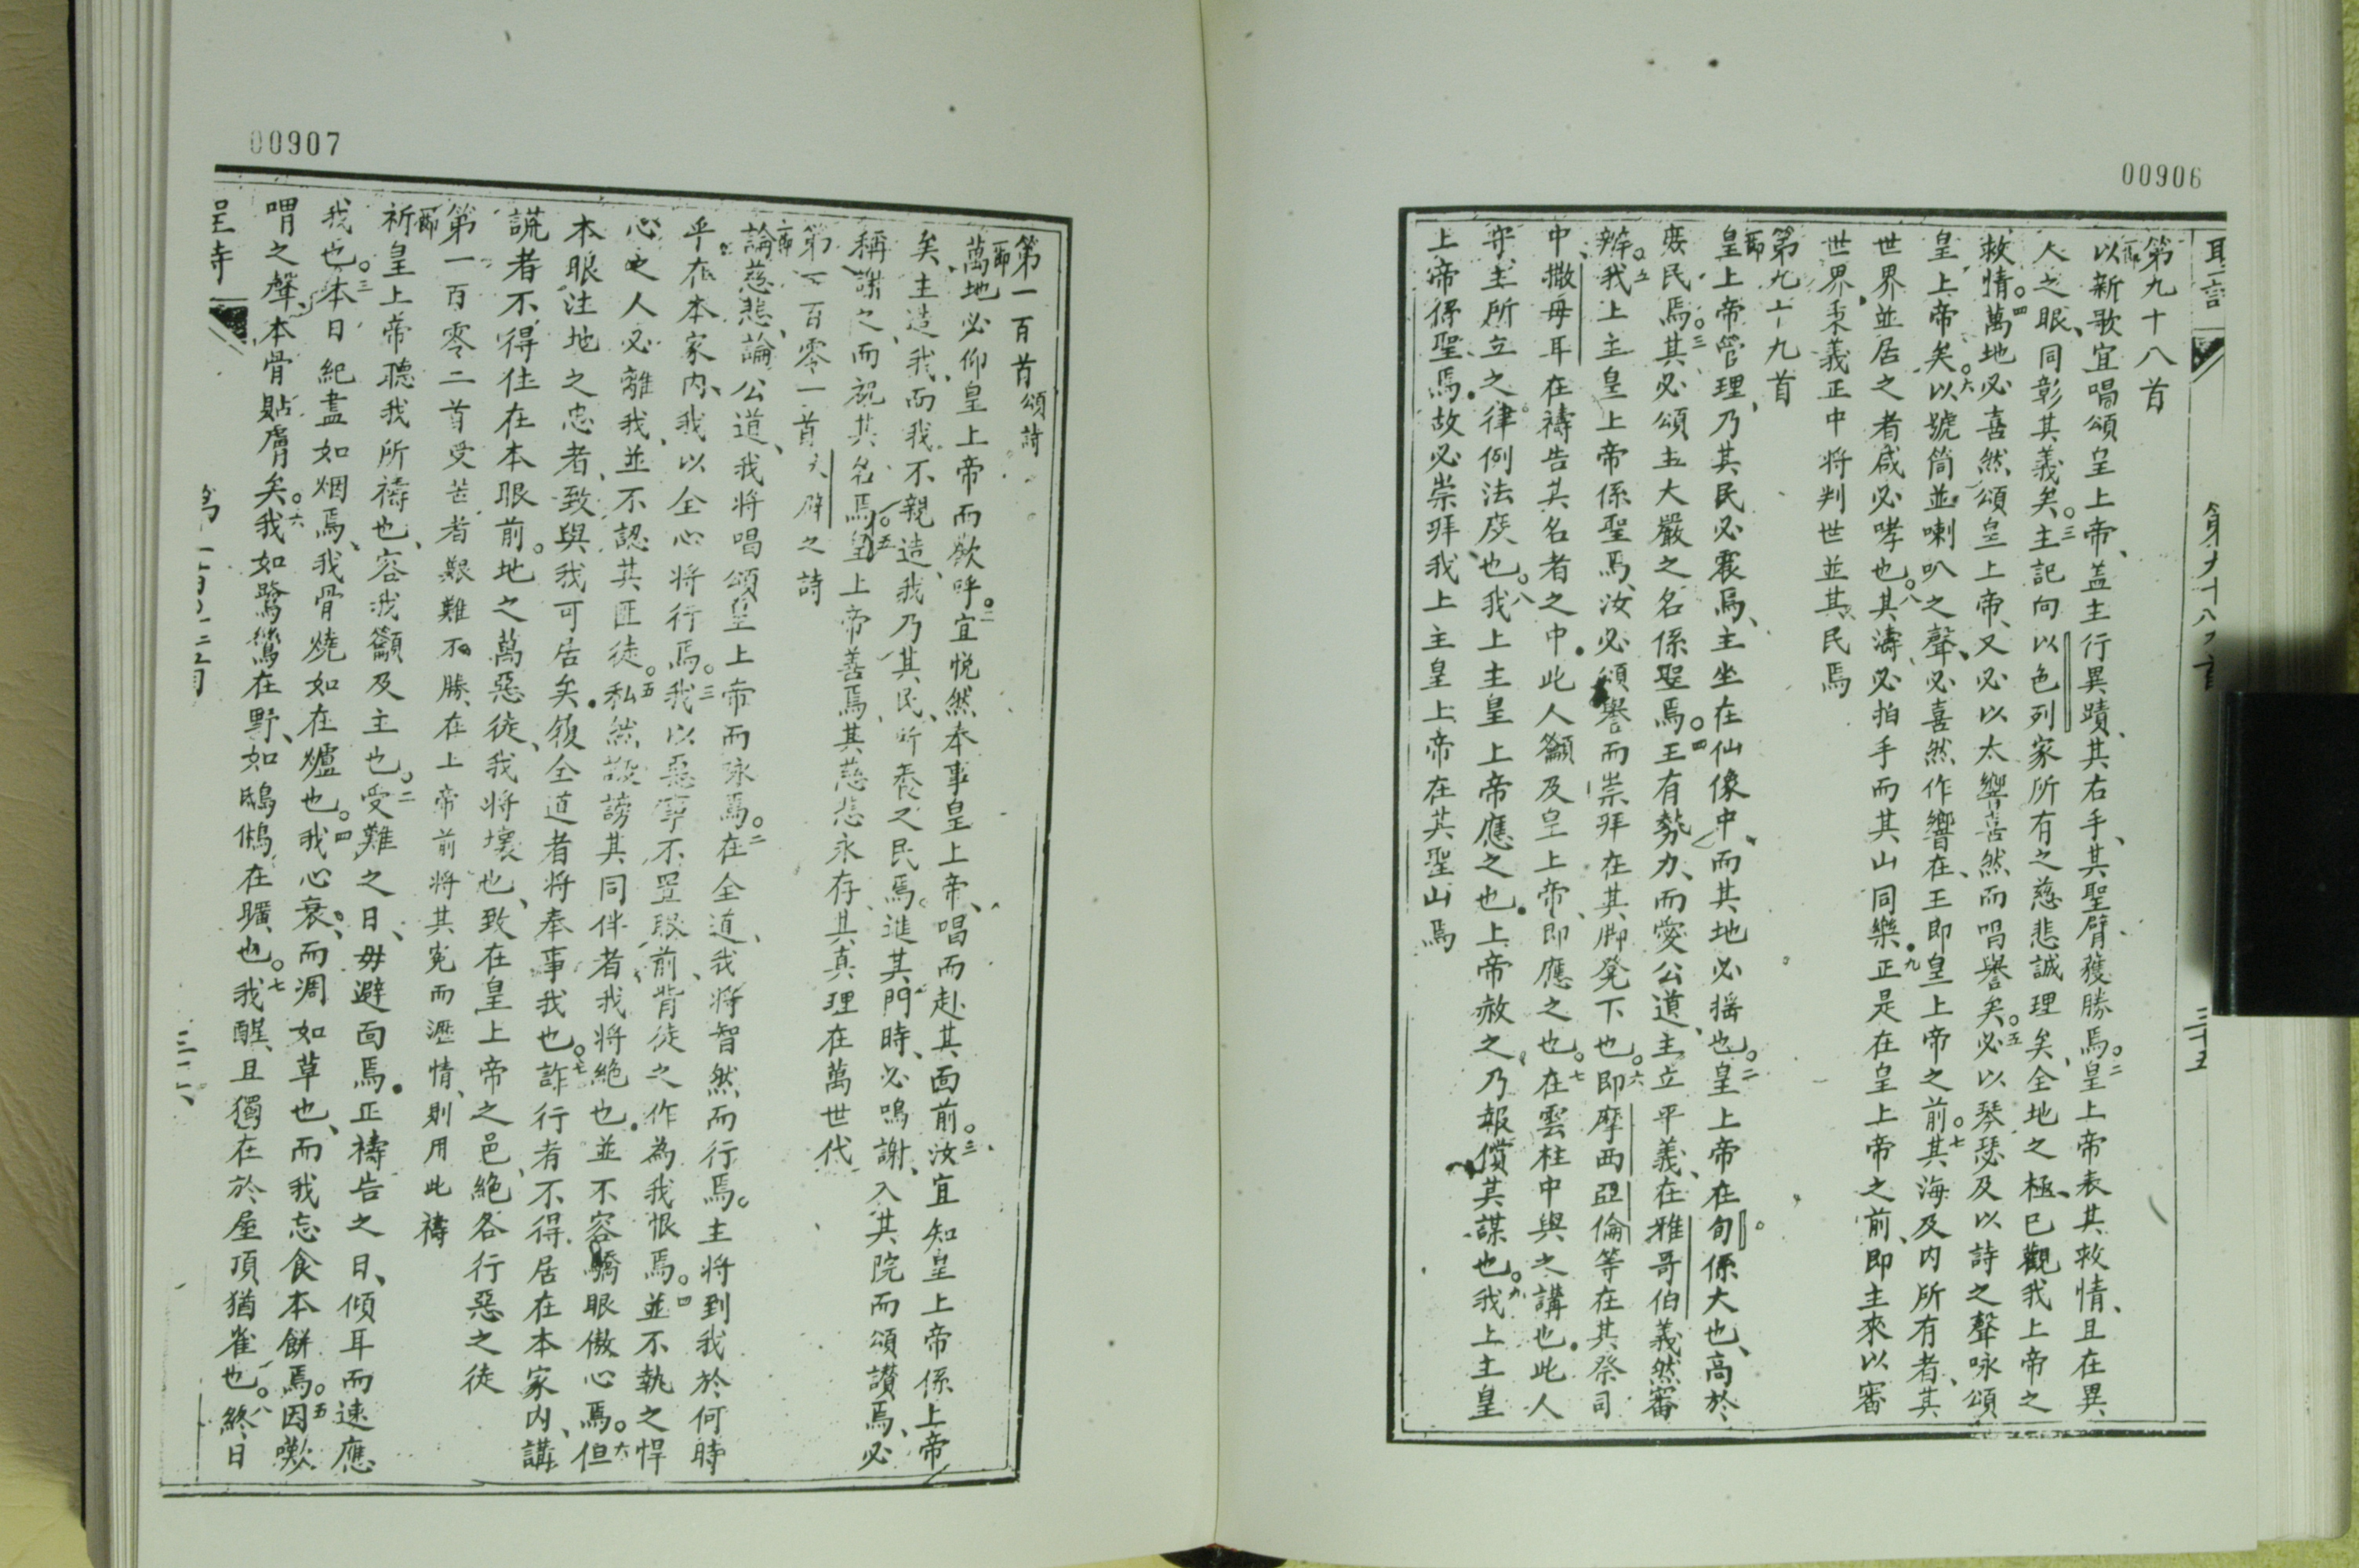 00906
第九十八首
以新歌宜唱頌皇上帝、盖主行異蹟、其右手、其聖臂獲勝焉。二皇上帝表其救情、且在異
人之眼、同彰其義矣。三主記向以色列家所有之慈悲誠理矣、全地之極、已觀我上帝之
救情。四萬地必喜然頌皇上帝、又必以太響喜然而唱譽矣。五必以琴瑟及以詩之聲咏頌
皇上帝矣。六以號筒並喇叭之聲、必喜然作響在王即皇上帝之前。七其海及內所有者、其
世界並居之者咸必哮也。八其濤必拍手而其山同樂。九正是在皇上帝之前、即主來以審
世界、秉義正中将判世並其民焉
第九十九首
皇上帝管理、乃其民必震焉、主坐在仙像中、而其地必摇也。二皇上帝在旬係大也、高於
庶民焉。三其必頌主大嚴之名係聖焉。四王有勢力、而愛公道、主立平義、在雅哥伯義然審
辨。五我上主皇上帝係聖焉、汝必頌譽而崇拜在其脚凳下也。六即摩西亞倫等在其祭司
中、撒母耳在禱告其名者之中、此人籲及皇上帝、即應之也。七在雲柱中與之講也、此人
守主所立之律例法度也。八我上主皇上帝應之也、上帝赦之、乃報償其謀也。九我上主皇
上帝係聖焉、故必崇拜我上主皇上帝在其聖山焉
第九十八九首
三十五
00907
第一百首頌詩
萬地必仰皇上帝而歡呼。二宜悦然奉事皇上帝、唱而赴其面前。三汝宜知皇上帝係上帝
矣、主造我、而我不親造、我乃其民、所養之民焉。進其門時、必鳴謝、入其院而頌讃焉、必
稱謝之、而祝其名焉。五皇上帝善焉、其慈悲永存、其真理在萬世代
第一百零一首大辟之詩
論慈悲、論公道、我将唱頌皇上帝而咏焉。二在全道、我将智然而行焉。主将到我於何時
乎、在本家內、我以全心将行焉。三我以惡事不置眼前、背徒之作為我恨焉。四並不執之悍
心之人必離我、並不認其匪徒。五私然譭謗其同伴者、我将絶也、並不容驕眼傲心焉。六但
本眼注地之忠者、致與我可居矣、履全道者将奉事我也。七詐行者不得居在本家內、講
謊者不得住在本眼前。地之萬惡徒、我将壞也、致在皇上帝之邑、絶各行惡之徒
第一百零二首受苦者艱難不勝在上帝前将其冤而瀝情、則用此禱
祈皇上帝聽我所禱也、容我籲及主也。二受難之日、毋避面焉、正禱告之日、傾耳而速應
我也。三本日紀盡如烟焉、我骨燒如在爐也。四我心衰、而凋如草也、而我忘食本餅焉。五因嘆
喟之聲、本骨貼膚矣。六我如鷺鷥在野、如鴟鵂在曠也。七我醒、且獨在於屋頂猶雀也。八終日